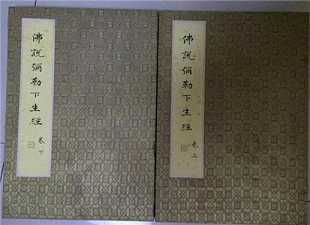 佛說彌勒下生經 卷上
佛說彌勒下生經 卷下